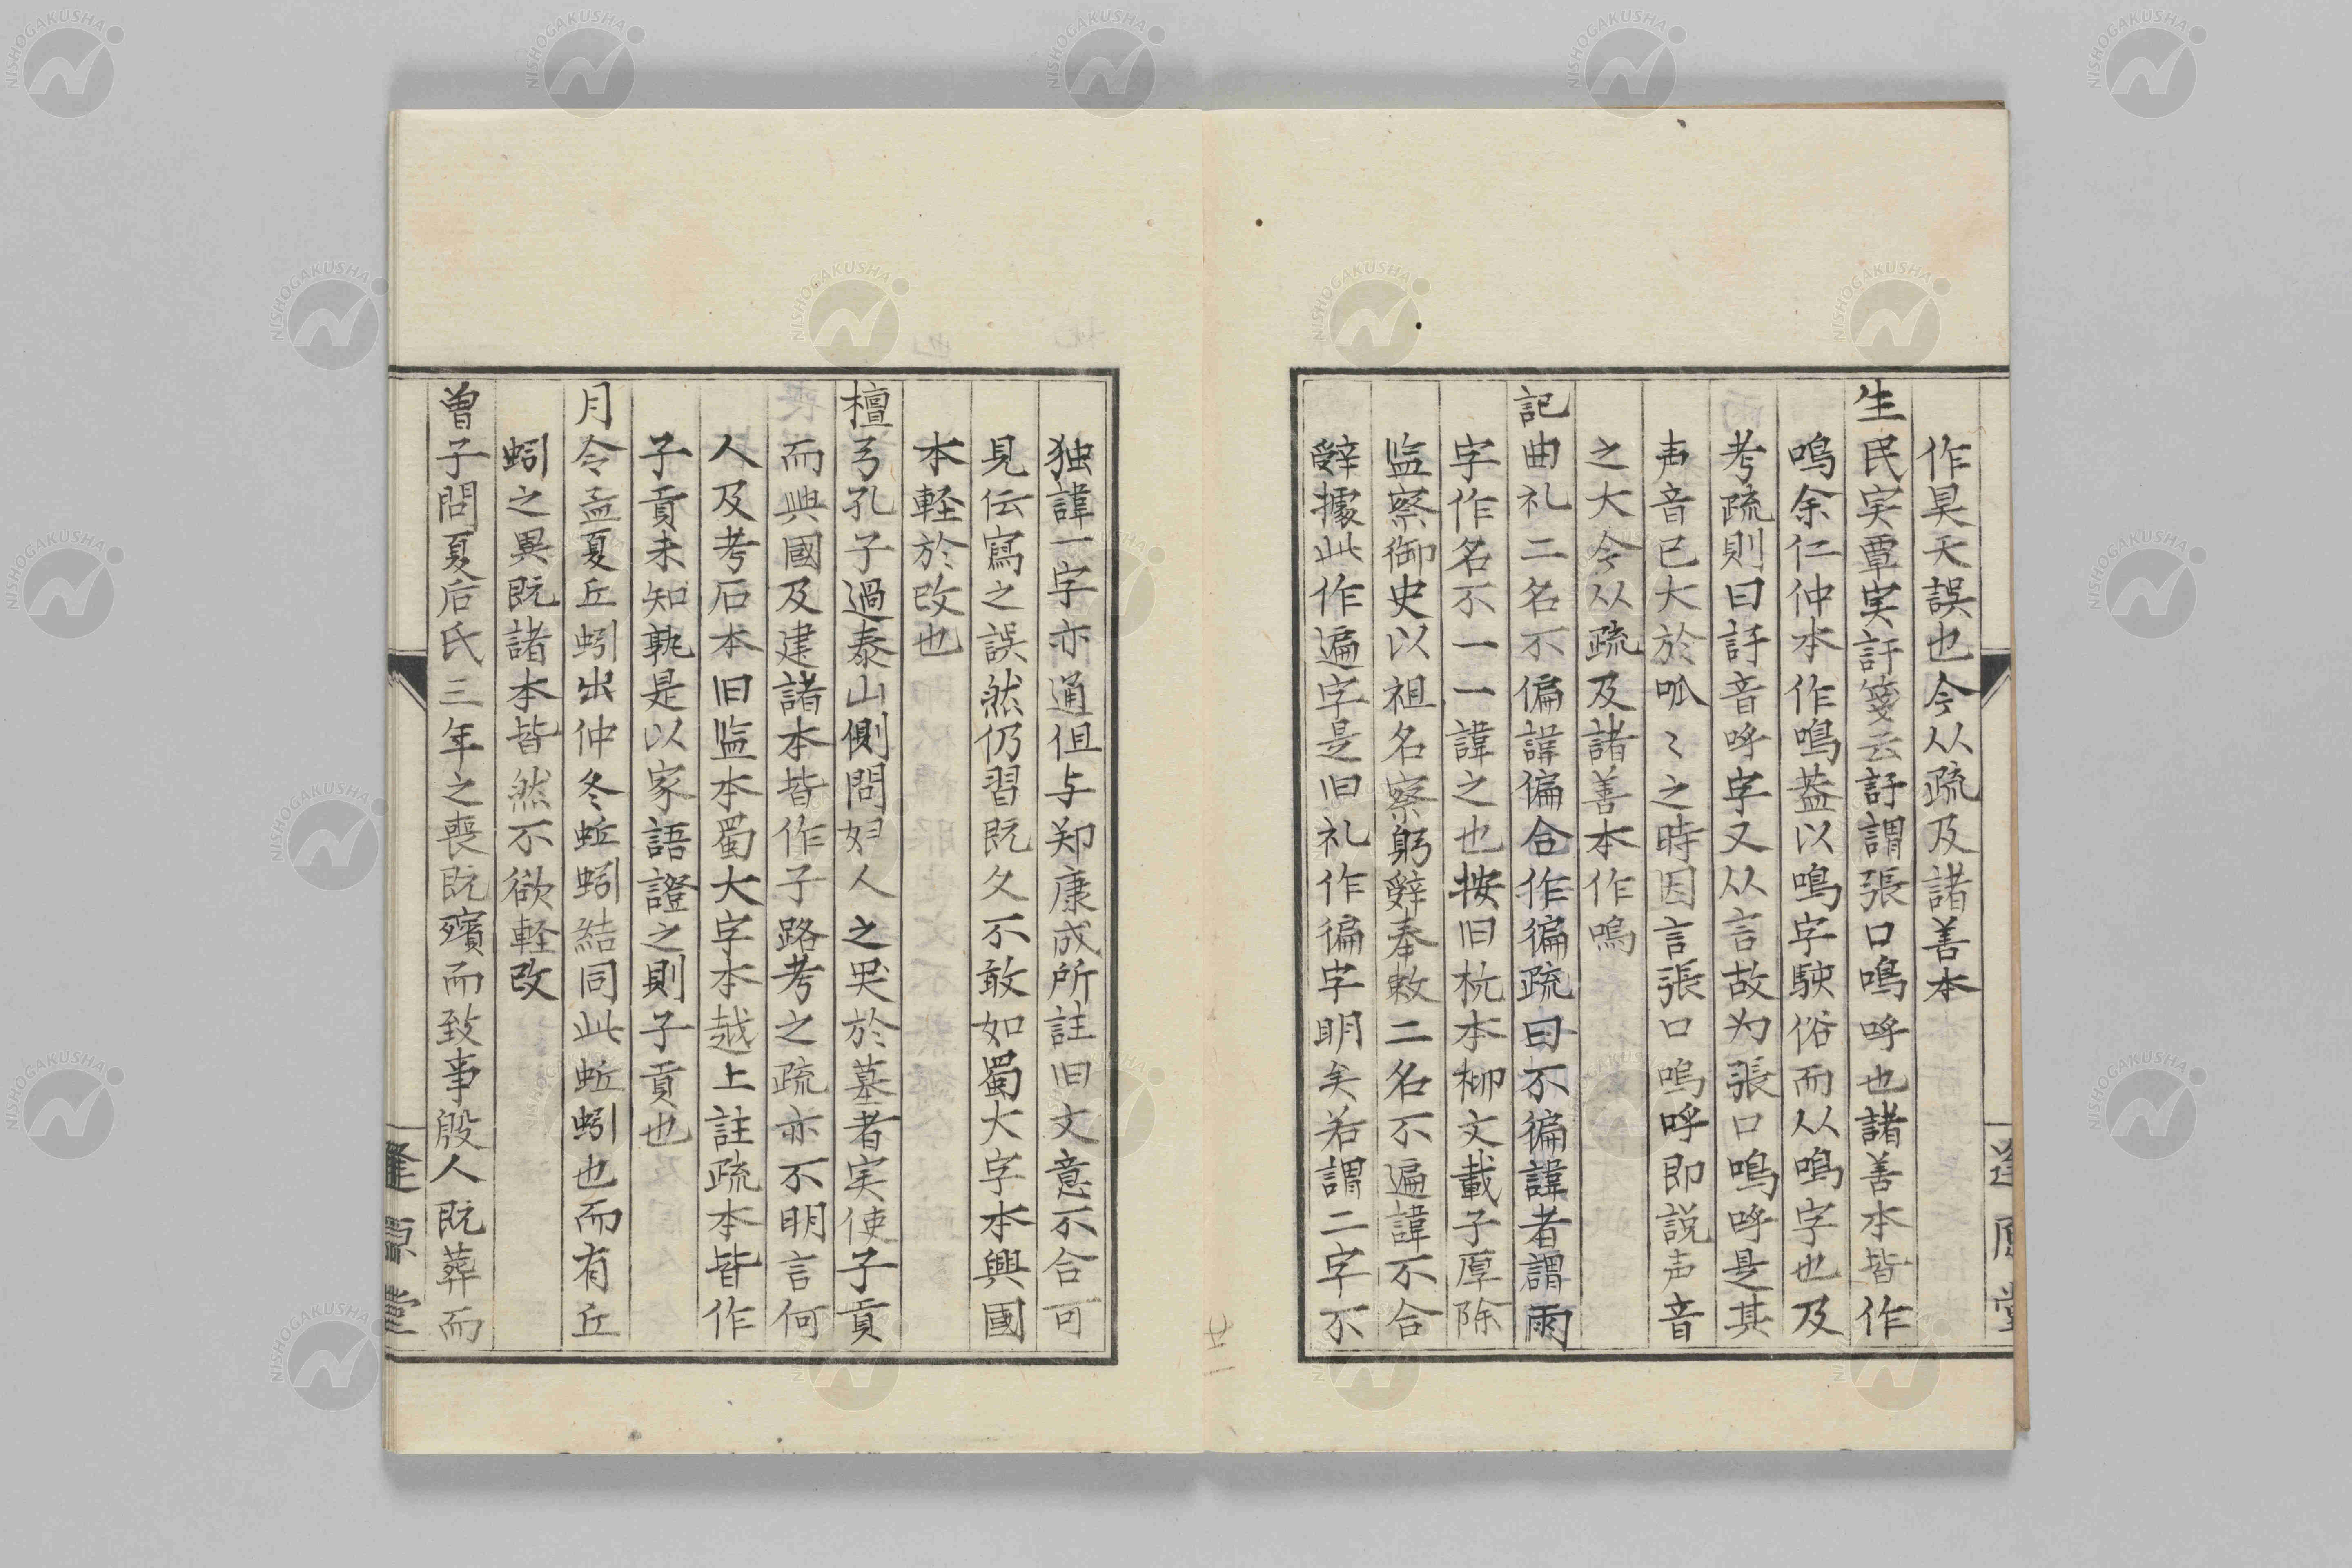 作昊天誤也今从疏及諸善本
生民実覃実訏箋云訏謂張口嗚呼也諸善本皆作
鳴余仁仲本作鳴蓋以嗚字駛俗而从鳴字也及
考疏則曰訏音呼字又从言故为張口嗚呼是其
声音已大於呱〻之時因言張口嗚呼即説声音
之大今从疏及諸善本作嗚
記曲礼二名不偏諱偏合作徧疏曰不徧諱者謂兩
字作名不一一諱之也按旧杭本柳文載子厚除
监察御史以祖名察躬辤奉敕二名不遍諱不合
辤據此作遍字是旧礼作徧字明矣若謂二字不
独諱一字亦通但与郑康成所註旧文意不合可
見伝寫之誤然仍習既久不敢如蜀大字本興國
本輕於改也
檀弓孔子過泰山側問妇人之哭於墓者実使子貢
而興國及建諸本皆作子路考之疏亦不明言何
人及考石本旧监本蜀大字本越上註疏本皆作
子貢未知孰是以家語證之則子貢也
月令孟夏丘蚓出仲冬蚯蚓結同此蚯蚓也而有丘
蚓之異既諸本皆然不欲輕改
曽子問夏后氏三年之喪既殯而致事殷人既葬而
逢原堂
逢原堂
NISHOGAKUSHA